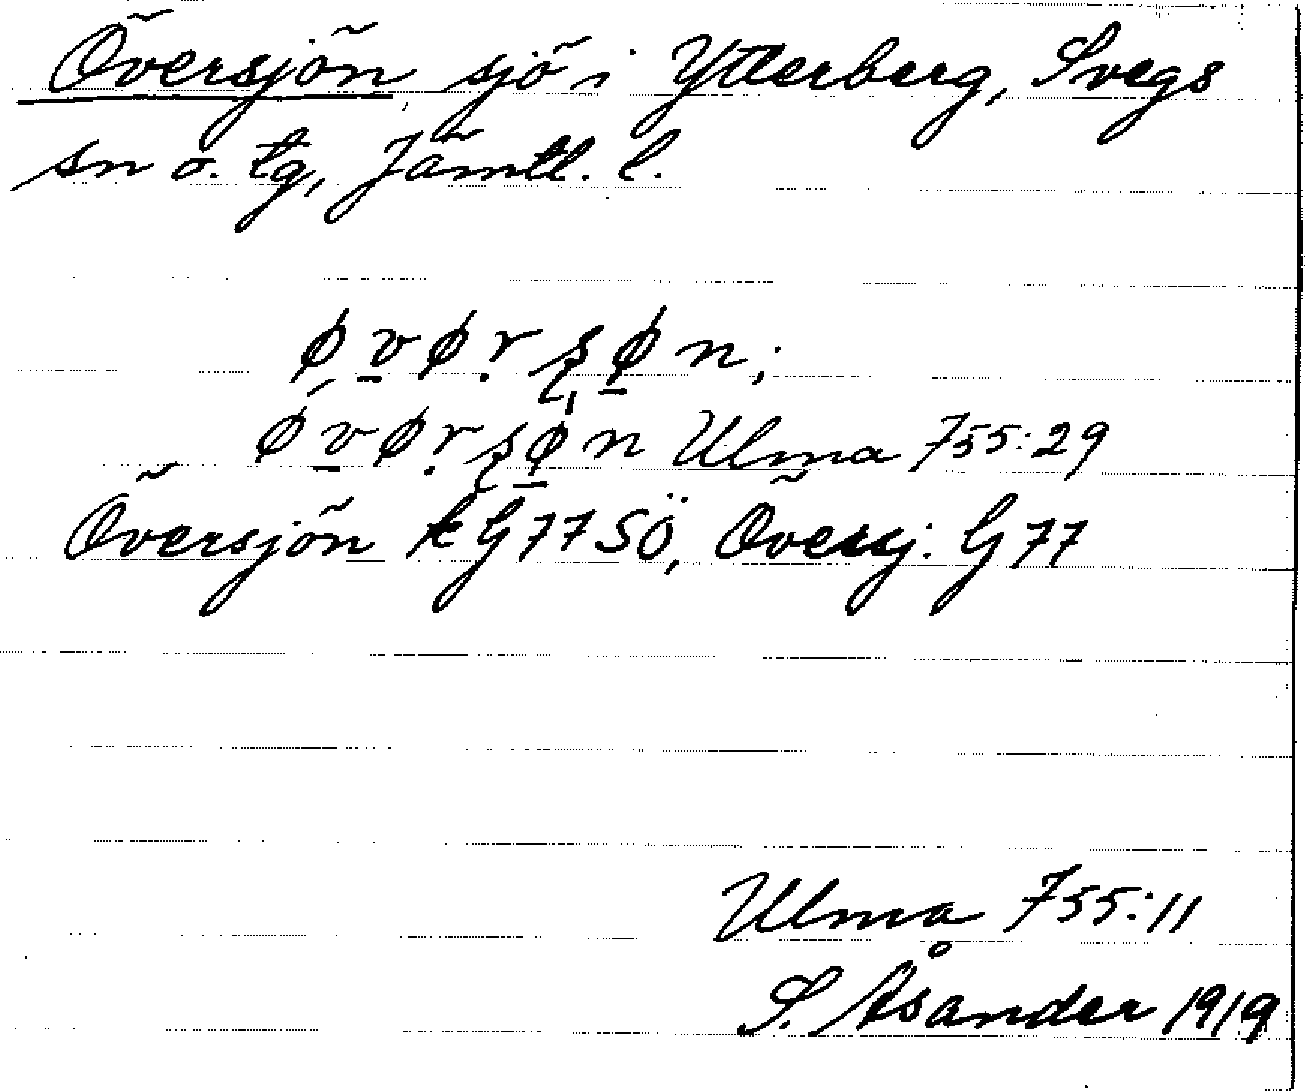 Översjön, sjö i Ytterberg, Svegs
sn o. tg, Jämtl. l.
øvørʂøn;
øvørʂøn Ulma 755:29
Översjön k G77SÖ, Översj. G77
Ulma 755:11
S. Åsander 1919